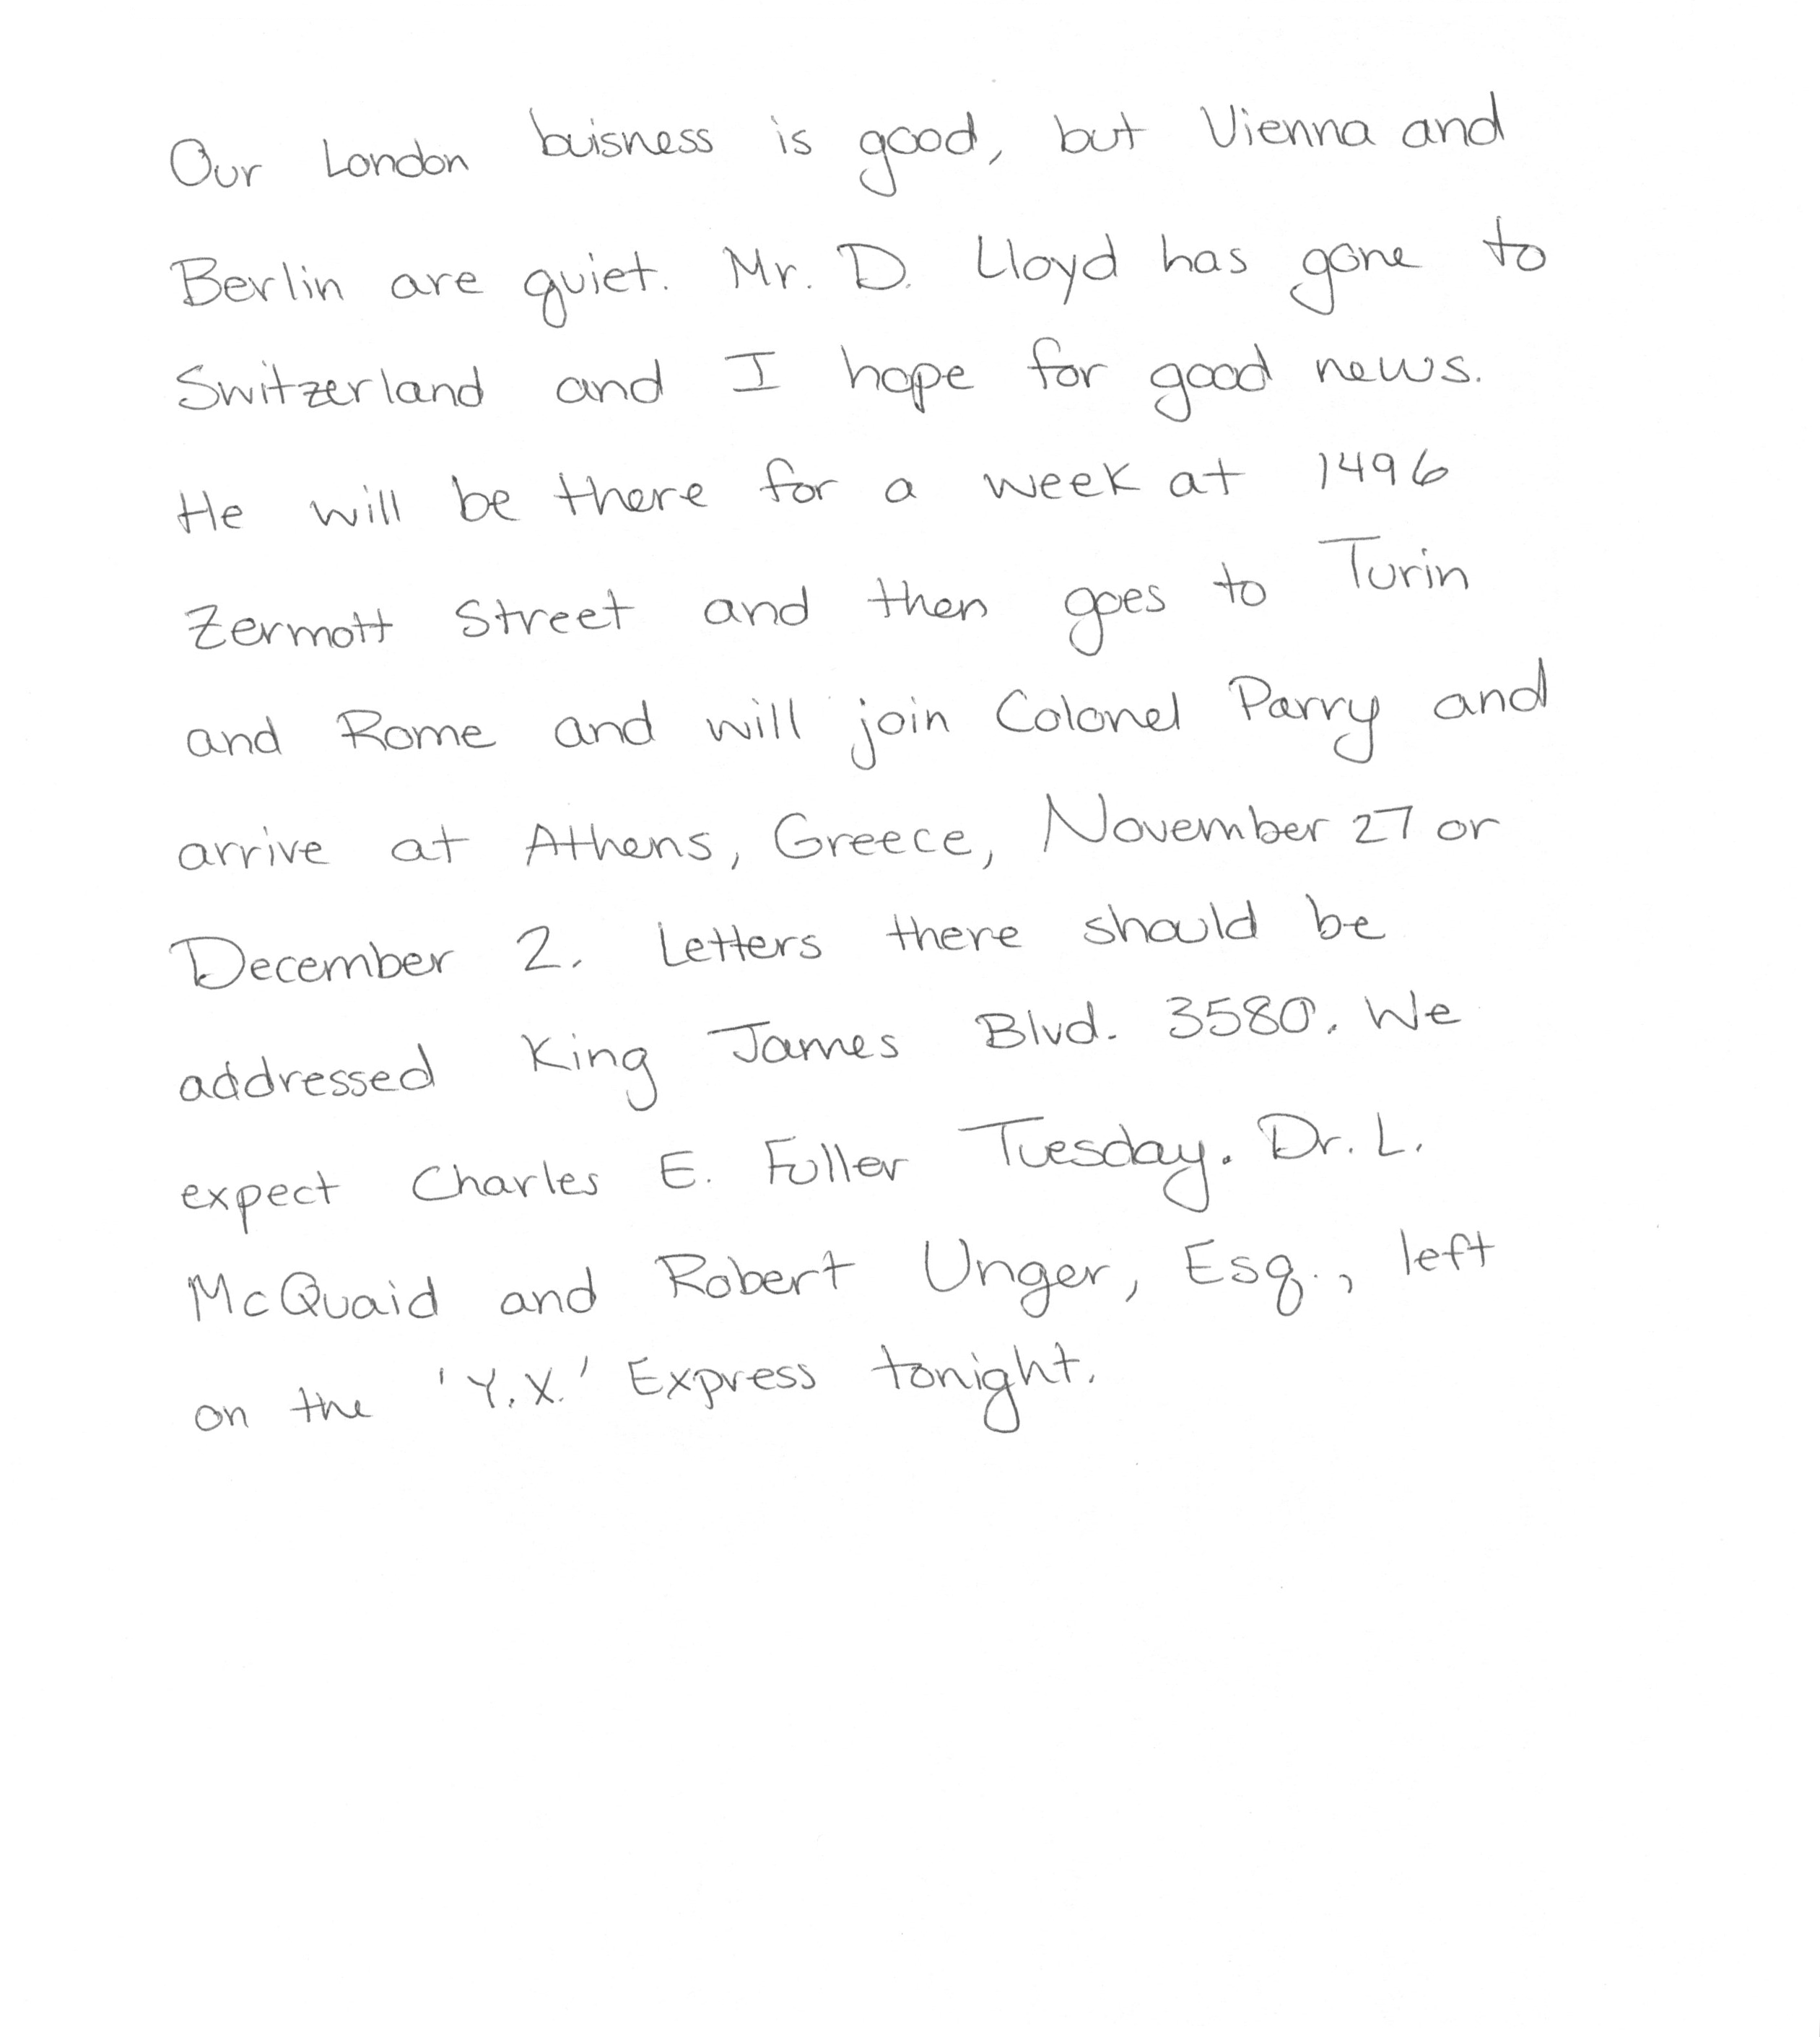 Our London buisness is good, but Vienna and
Berlin are quiet. Mr. D. Lloyd has gone to
Switzerland and I hope for good news.
He will be there for a week at 1496
Zermott Street and then goes to Turin
and Rome and will join Colonel Parry and
arrive at Athens, Greece, November 27 or
December 2. Letters there should be
addressed King James Blvd. 3580. We
expect Charles E. Fuller Tuesday. Dr. L.
McQuaid and Robert Unger, Esq., left
on the 'Y.X.' Express tonight.